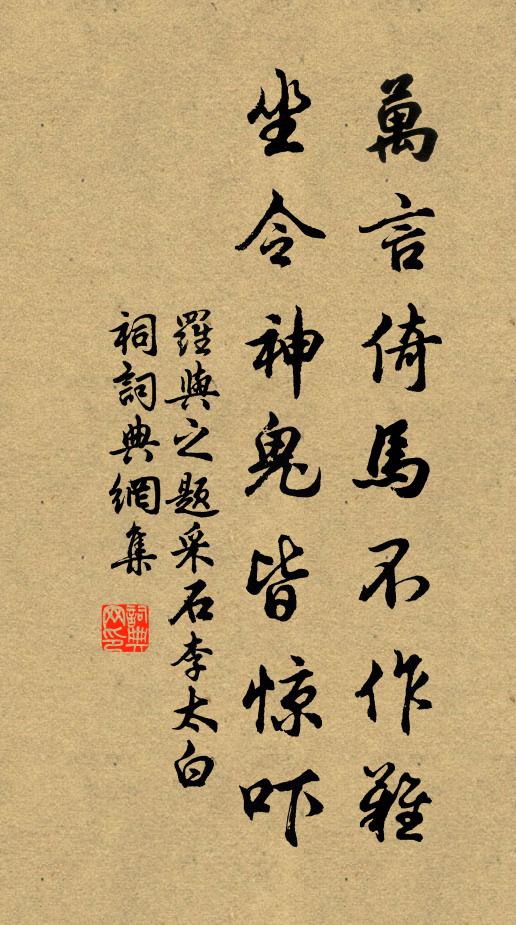 萬言倚馬不作難
坐令神鬼皆惊吓
羅與之题采石李太白
祠詞典網集
詞典
网印